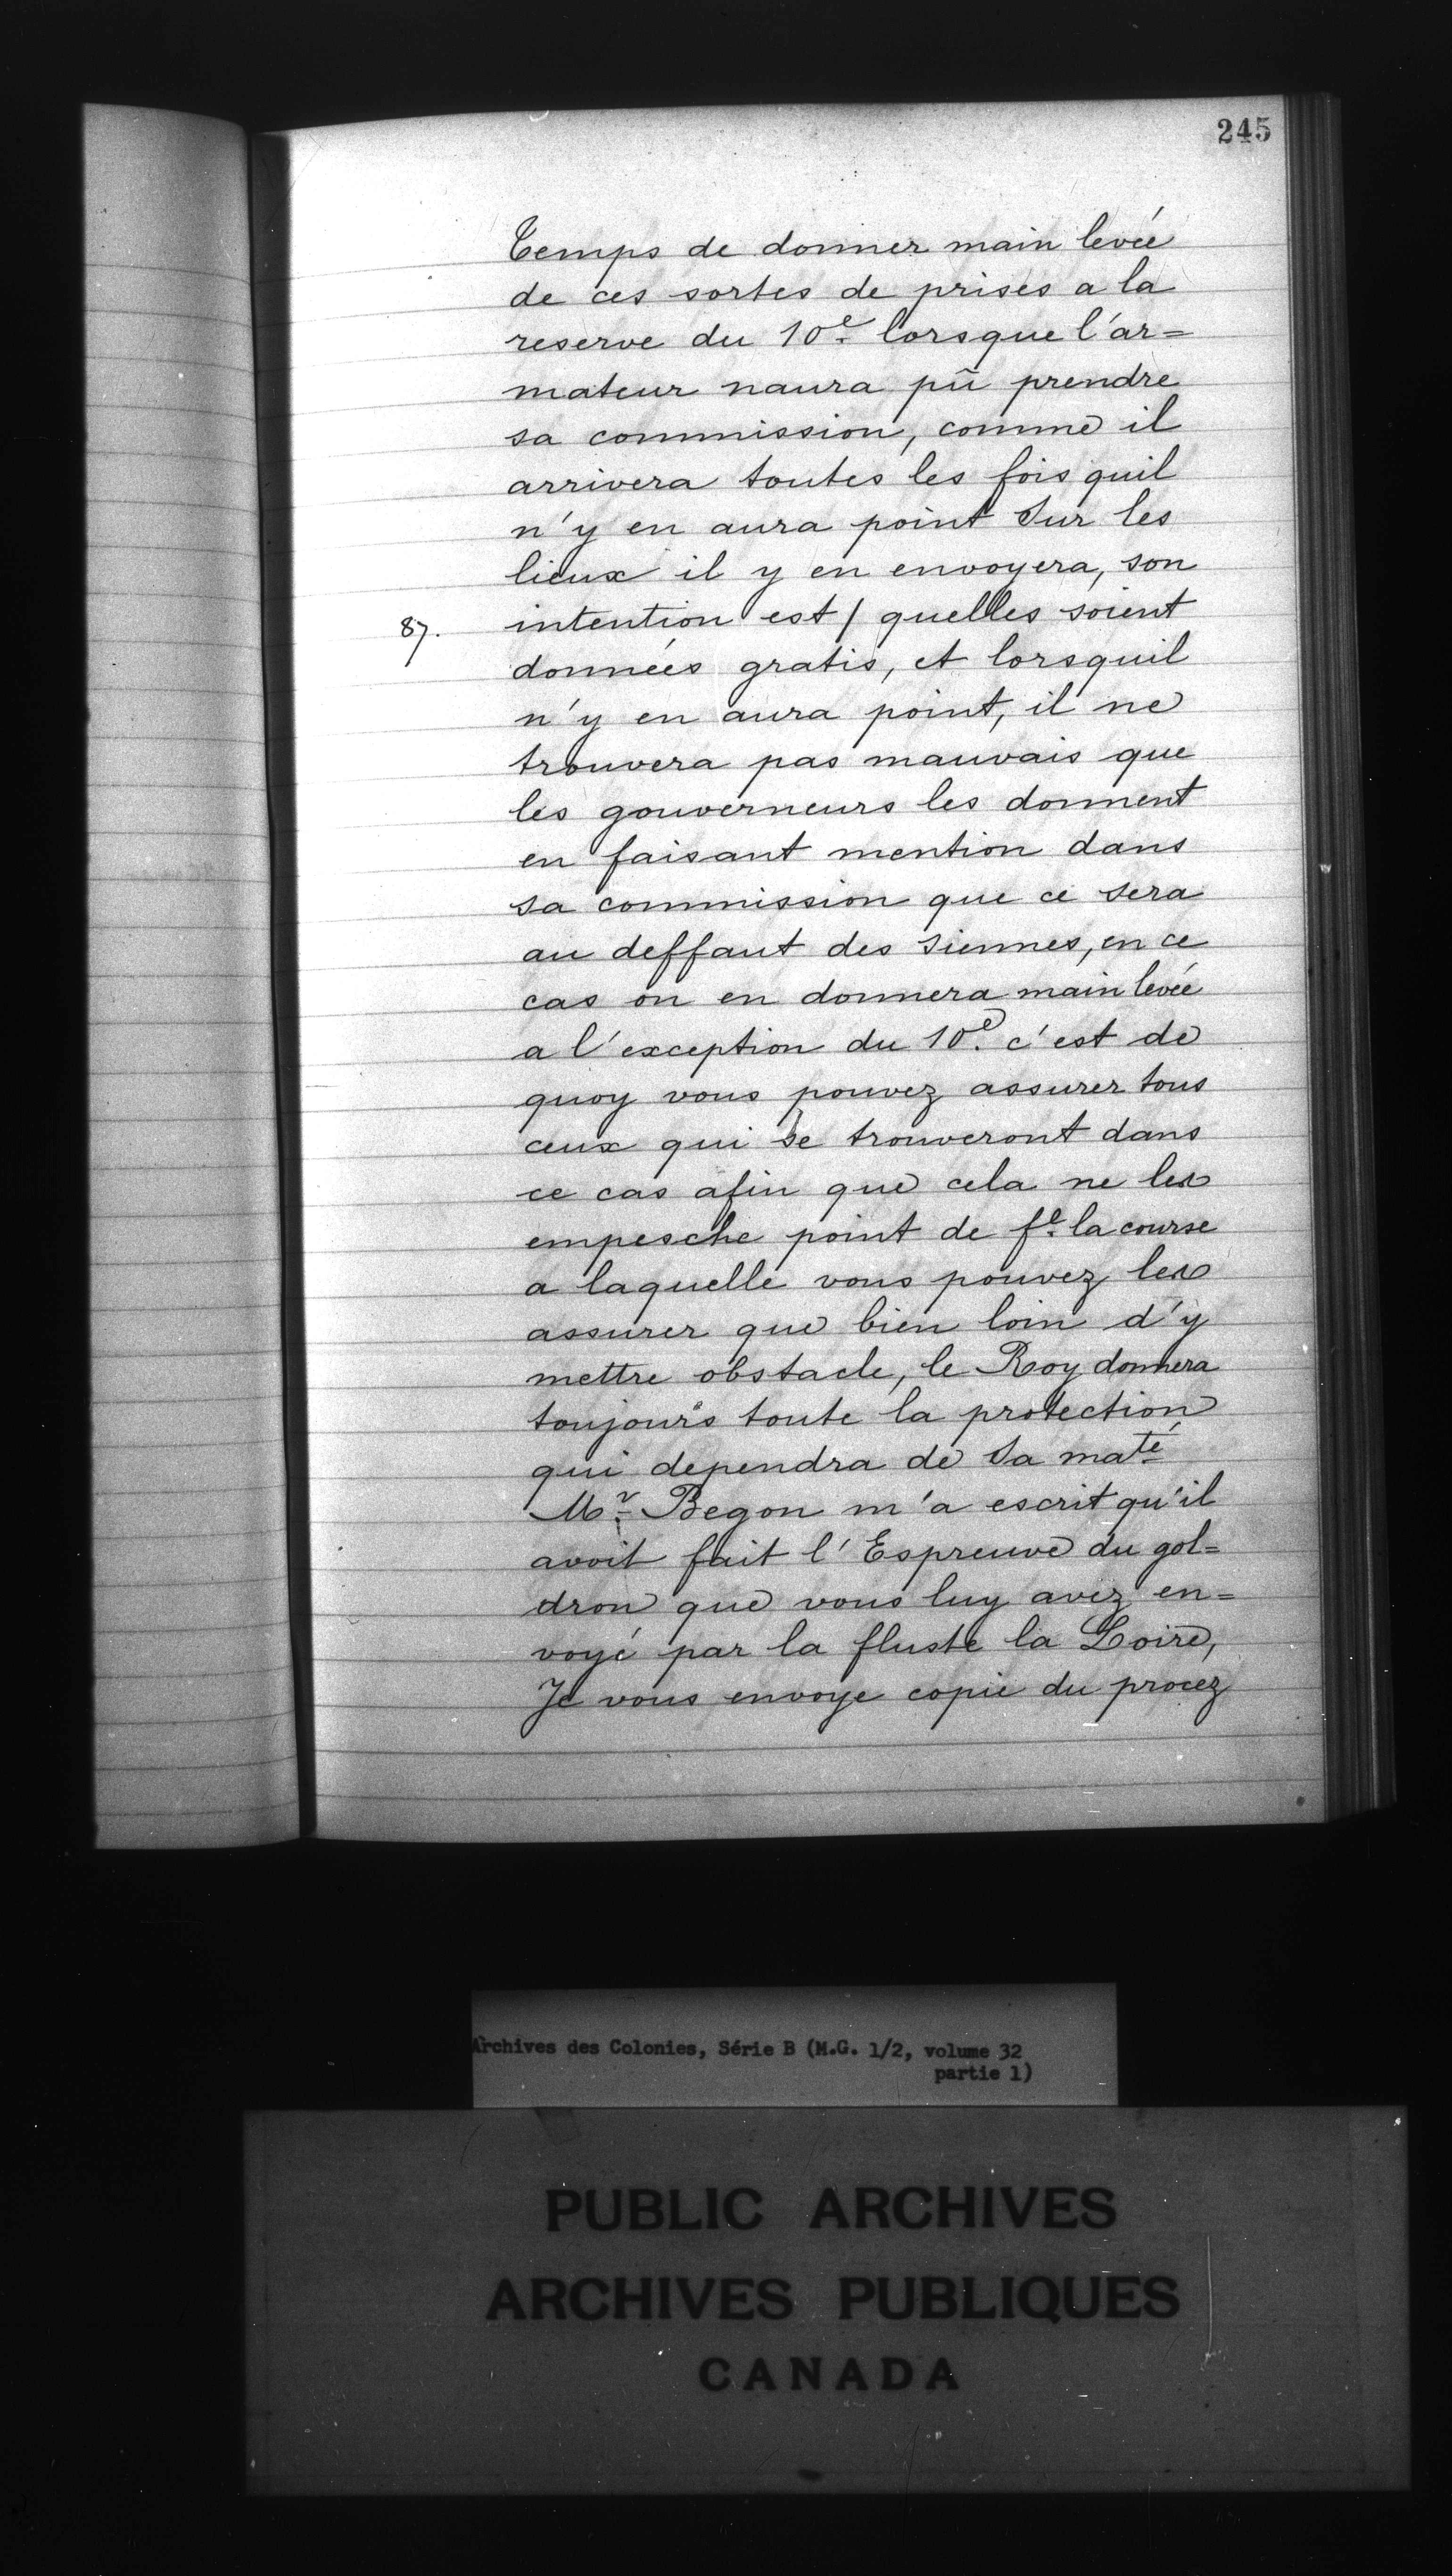 245
temps de donner main levée
de ces sortes de prises a la
reserve du 10e. lorsque l'ar=
mateur naura pû prendre
sa commission, comme il
arrivera toutes les fois quil
n'y en aura point sur les
lieux il y en envoyera, son
87. intention est / quelles soient
données gratis, et lorsquil
n'y en aura point, il ne
trouvera pas mauvais que
les gouverneurs les donnent
en faisant mention dans
sa commission que ce sera
au deffaut des siennes, en ce
cas on en donnera main levée
a l'exception du 10e. c'est de
quoy vous pouvez assurer tous
ceux qui se trouveront dans
ce cas afin que cela ne les
empesche point de fe. la course
a laquelle vous pouvez les
assurer que bien loin d'y
mettre obstacle, le Roy donnera
toujours toute la protection
qui dependra de Sa maté
Mr. Begon m'a escrit qu'il
avoit fait l'Espreuve du gol=
dron que vous luy avez en=
voyé par la fluste la Loire,
Je vous envoye copie du procez
Archives des Colonies, Série B (M.G. 1/2, volume 32
partie 1)
PUBLIC ARCHIVES
ARCHIVES PUBLIQUES
CANADA